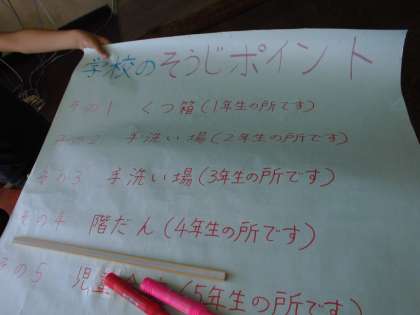 学校のそうじポイント
その1 くつ箱(1年生の所です)
その2 手洗い場(2年生の所です)
その3 手洗い場(3年生の所です)
その4 階だん(4年生の所です)
その5 児童(5年生の所です)